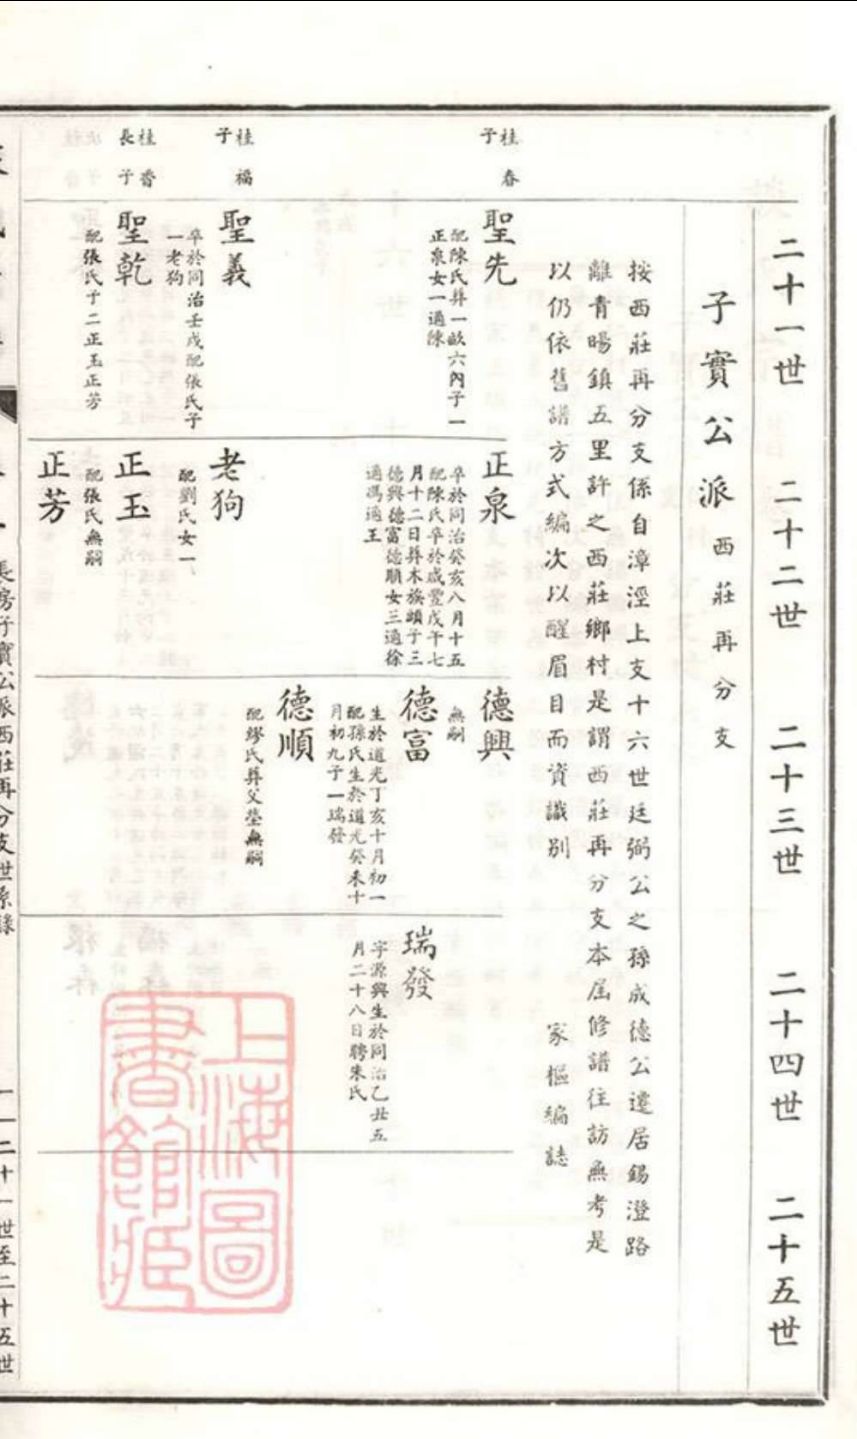 二十一世 二十二世 二十三世 二十四世 二十五世
子實公派 西莊再分支
按西莊再分支係自漳涇上支十六世廷弼公之孫成德公遷居錫澄路
離青暘鎮五里許之西莊鄉村是謂西莊再分支本屆修譜往訪無考是
以仍依舊譜方式編次以醒眉目而資識别 家樞編誌
桂春
子
聖先
配陳氏葬一畝六內子一
正泉女一適陳
正泉
卒於同治癸亥八月十五
配陳氏卒於咸豐戊午七
月十二日葬木簇頭子三
德興德富德順女三適徐
適馮適王
德興
無嗣
德富
生於道光丁亥十月初一
配孫氏生於道光癸未十
月初九子一瑞發
瑞發
字源興生於同治乙丑五
月二十八日聘朱氏
德順
配繆氏葬父塋無嗣
桂福
子
聖義
卒於同治壬戌配張氏子
一老狗
老狗
配劉氏女一
桂香
長子
聖乾
配張氏子二正玉正芳
正玉
配張氏無嗣
正芳
長房子實公派西莊再分支世系錄
二十一世至二十五世
上海圖
書館藏